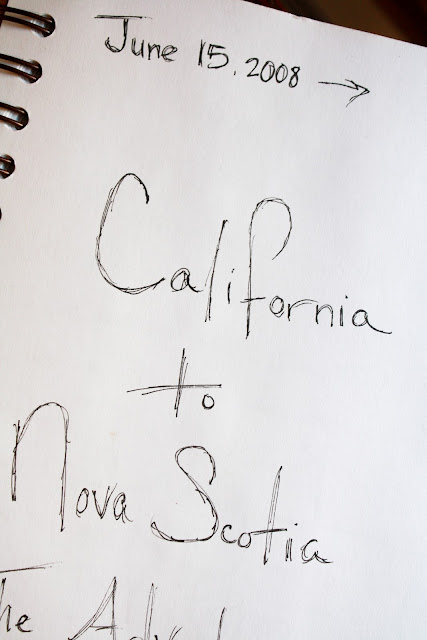 June 15, 2008 →
California
to
Nova Scotia
The